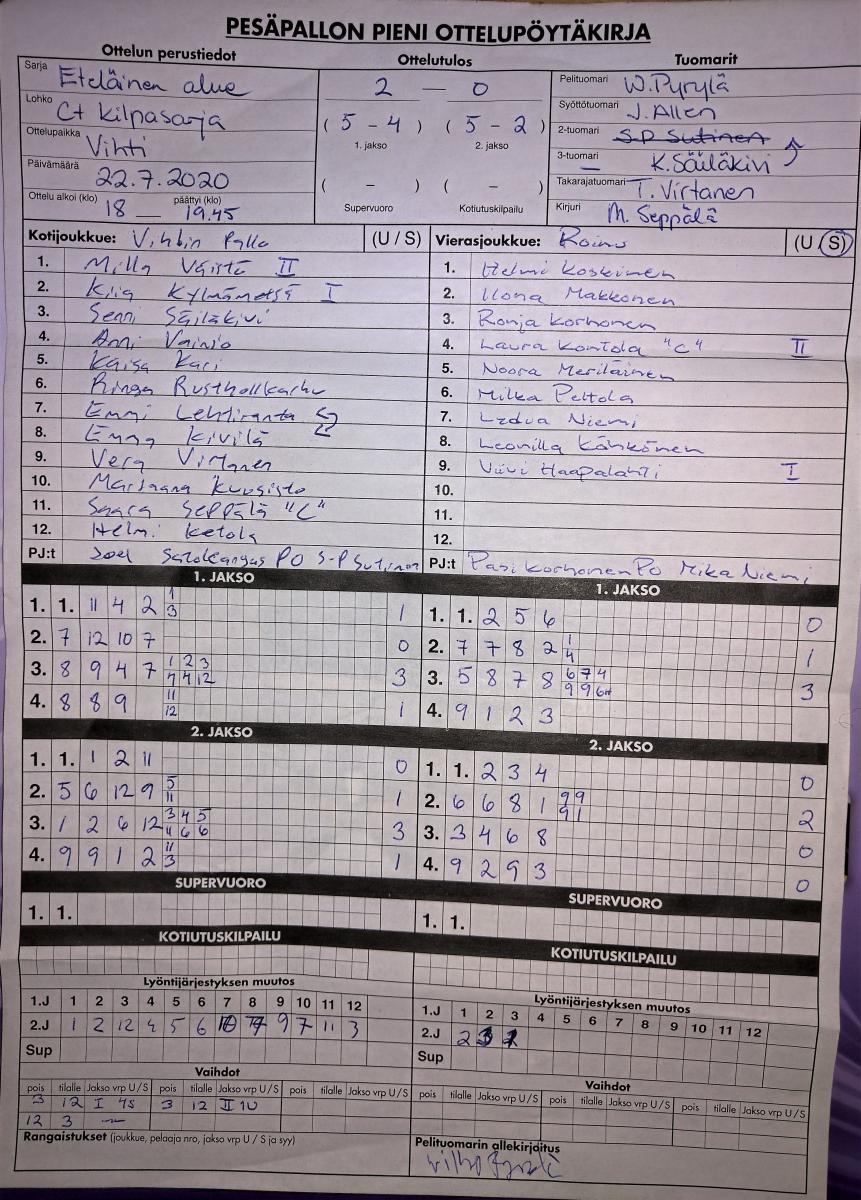 PESÄPALLON PIENI OTTELUPÖYTÄKIRJA
Ottelun perustiedot
Sarja Eteläinen alue
Lohko C+ Kilpasarja
Ottelupaikka Vihti
Päivämäärä 22.7.2020
Ottelu alkoi (klo) päättyi (klo)
18 — 19.45
Ottelutulos
2 — 0
( 5 - 4 ) ( 5 - 2 )
1. jakso 2. jakso
( - ) ( - )
Supervuoro Kotiutuskilpailu
Tuomarit
Pelituomari W. Pyrylä
Syöttötuomari J. Allen
2-tuomari S-P Sutinen
3-tuomari — K. Säiläkivi
Takarajatuomari T. Virtanen
Kirjuri M. Seppälä
Kotijoukkue: Vihdin Pallo (U / S)
1. Milla Väistö II
2. Kiia Kylmämetsä I
3. Senni Säiläkivi
4. Anni Vainio
5. Kaisa Kari
6. Ringa Rusthollkarhu
7. Emmi Lehtiranta
8. Emma Kivilä
9. Vera Virtanen
10. Marjaana Kuusisto
11. Saara Seppälä "C"
12. Helmi Ketola
PJ:t Joel PO S-P Sutinen
Vierasjoukkue: Roihu (U / S)
1. Helmi Koskinen
2. Ilona Makkonen
3. Ronja Korhonen
4. Laura Kontola "C" II
5. Noora Meriläinen
6. Milka Peltola
7. Niemi
8. Leonilla Kähkönen
9. Viivi Haapalahti I
10.
11.
12.
PJ:t Pasi Korhonen PO Mika Niemi
1. JAKSO
1. 1. 11 4 2 1 3 1
2. 7 12 10 7 0
3. 8 9 4 7 1 2 3 7 4 12 3
4. 8 8 9 11 12 1
1. JAKSO
1. 1. 2 5 6 0
2. 7 7 8 2 1 4 1
3. 5 8 7 8 6 7 4 9 9 6 3
4. 9 1 2 3
2. JAKSO
1. 1. 1 2 11 0
2. 5 6 12 9 5 11 1
3. 1 2 6 12 3 4 5 11 6 6 3
4. 9 9 1 2 11 3 1
2. JAKSO
1. 1. 2 3 4 0
2. 6 6 8 1 9 9 9 1 2
3. 3 4 6 8 0
4. 9 2 9 3 0
SUPERVUORO
1. 1.
KOTIUTUSKILPAILU
SUPERVUORO
1. 1.
KOTIUTUSKILPAILU
Lyöntijärjestyksen muutos
1.J 1 2 3 4 5 6 7 8 9 10 11 12
2.J 1 2 12 4 5 6 9 7 11 3
Sup
Lyöntijärjestyksen muutos
1.J 1 2 3 4 5 6 7 8 9 10 11 12
2.J 2 3 1
Sup
Vaihdot
pois tilalle Jakso vrp U / S pois tilalle Jakso vrp U / S pois tilalle Jakso vrp U / S
3 12 I 4S 3 12 II 1U
12 3 —
Vaihdot
pois tilalle Jakso vrp U / S pois tilalle Jakso vrp U / S pois tilalle Jakso vrp U / S
Rangaistukset (joukkue, pelaaja nro, jakso vrp U / S ja syy)
Pelituomarin allekirjoitus